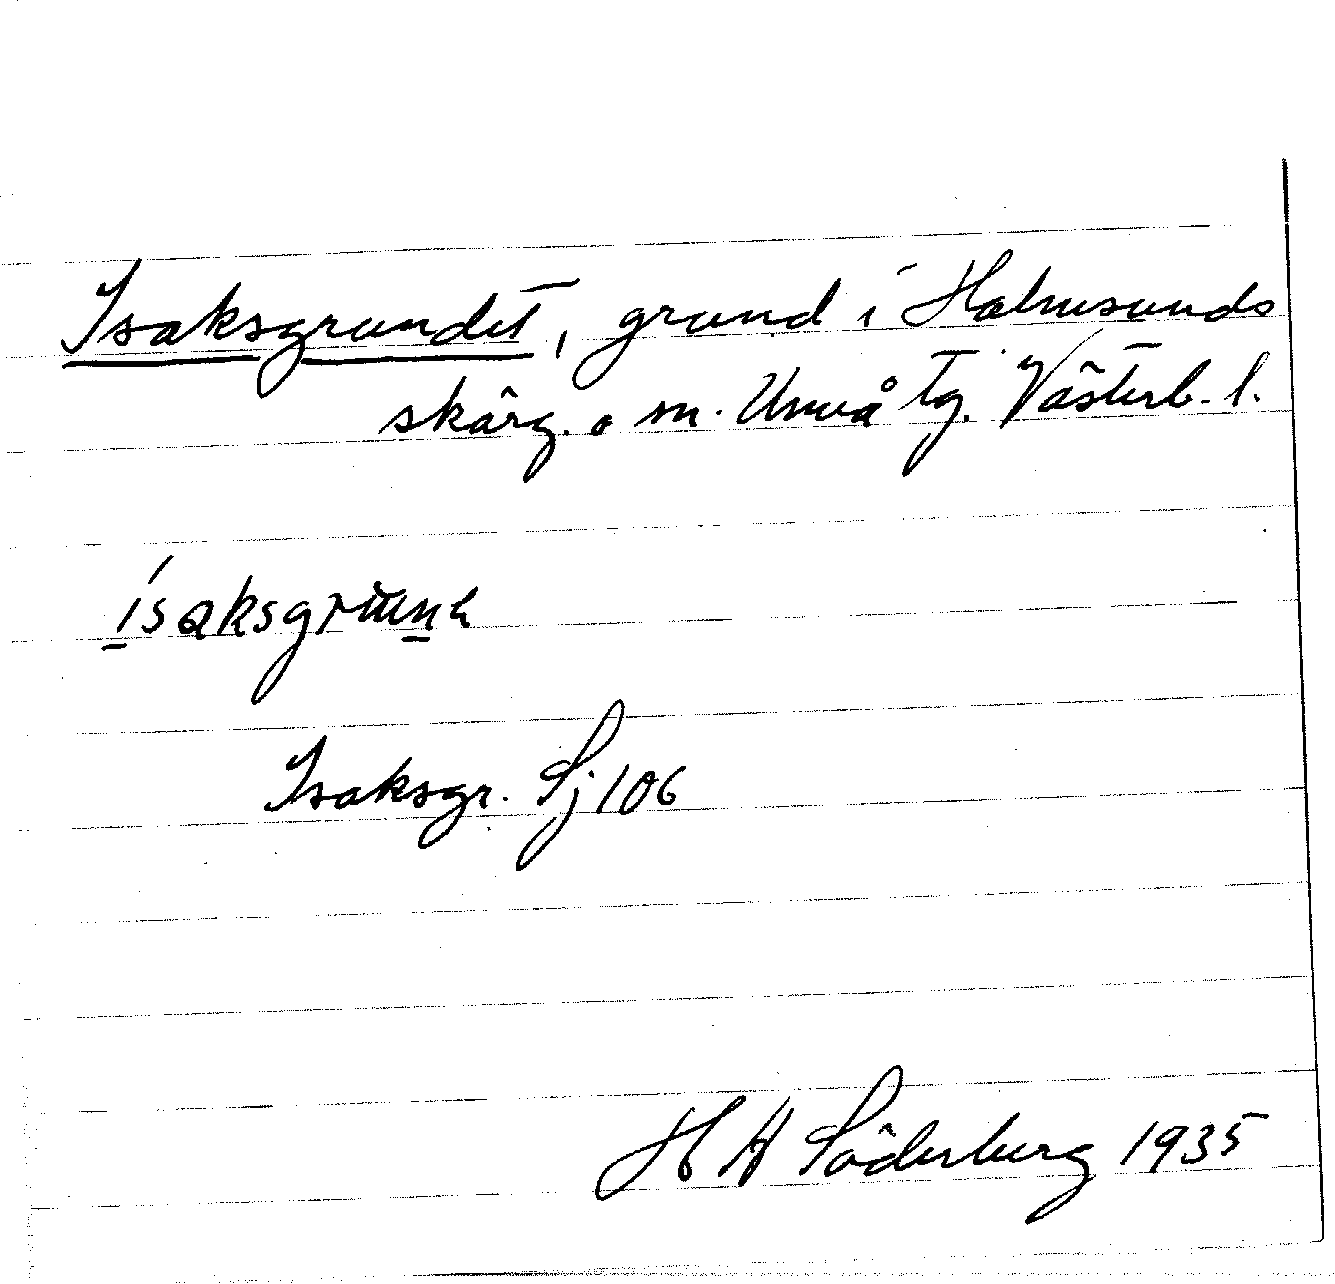 Isaksgrundet, grund i Holmsunds
skärg. o m. Umeå Tg. Västerb. l.
Isaksgr. Sj 106
H A Söderberg 1935